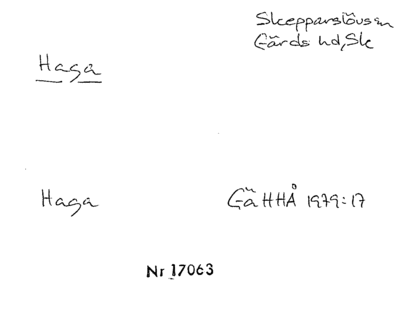 Skepparslövs sn
Gärds hd, Sk
Haga
Haga
Gä HHÅ 1979:17
Nr 17063